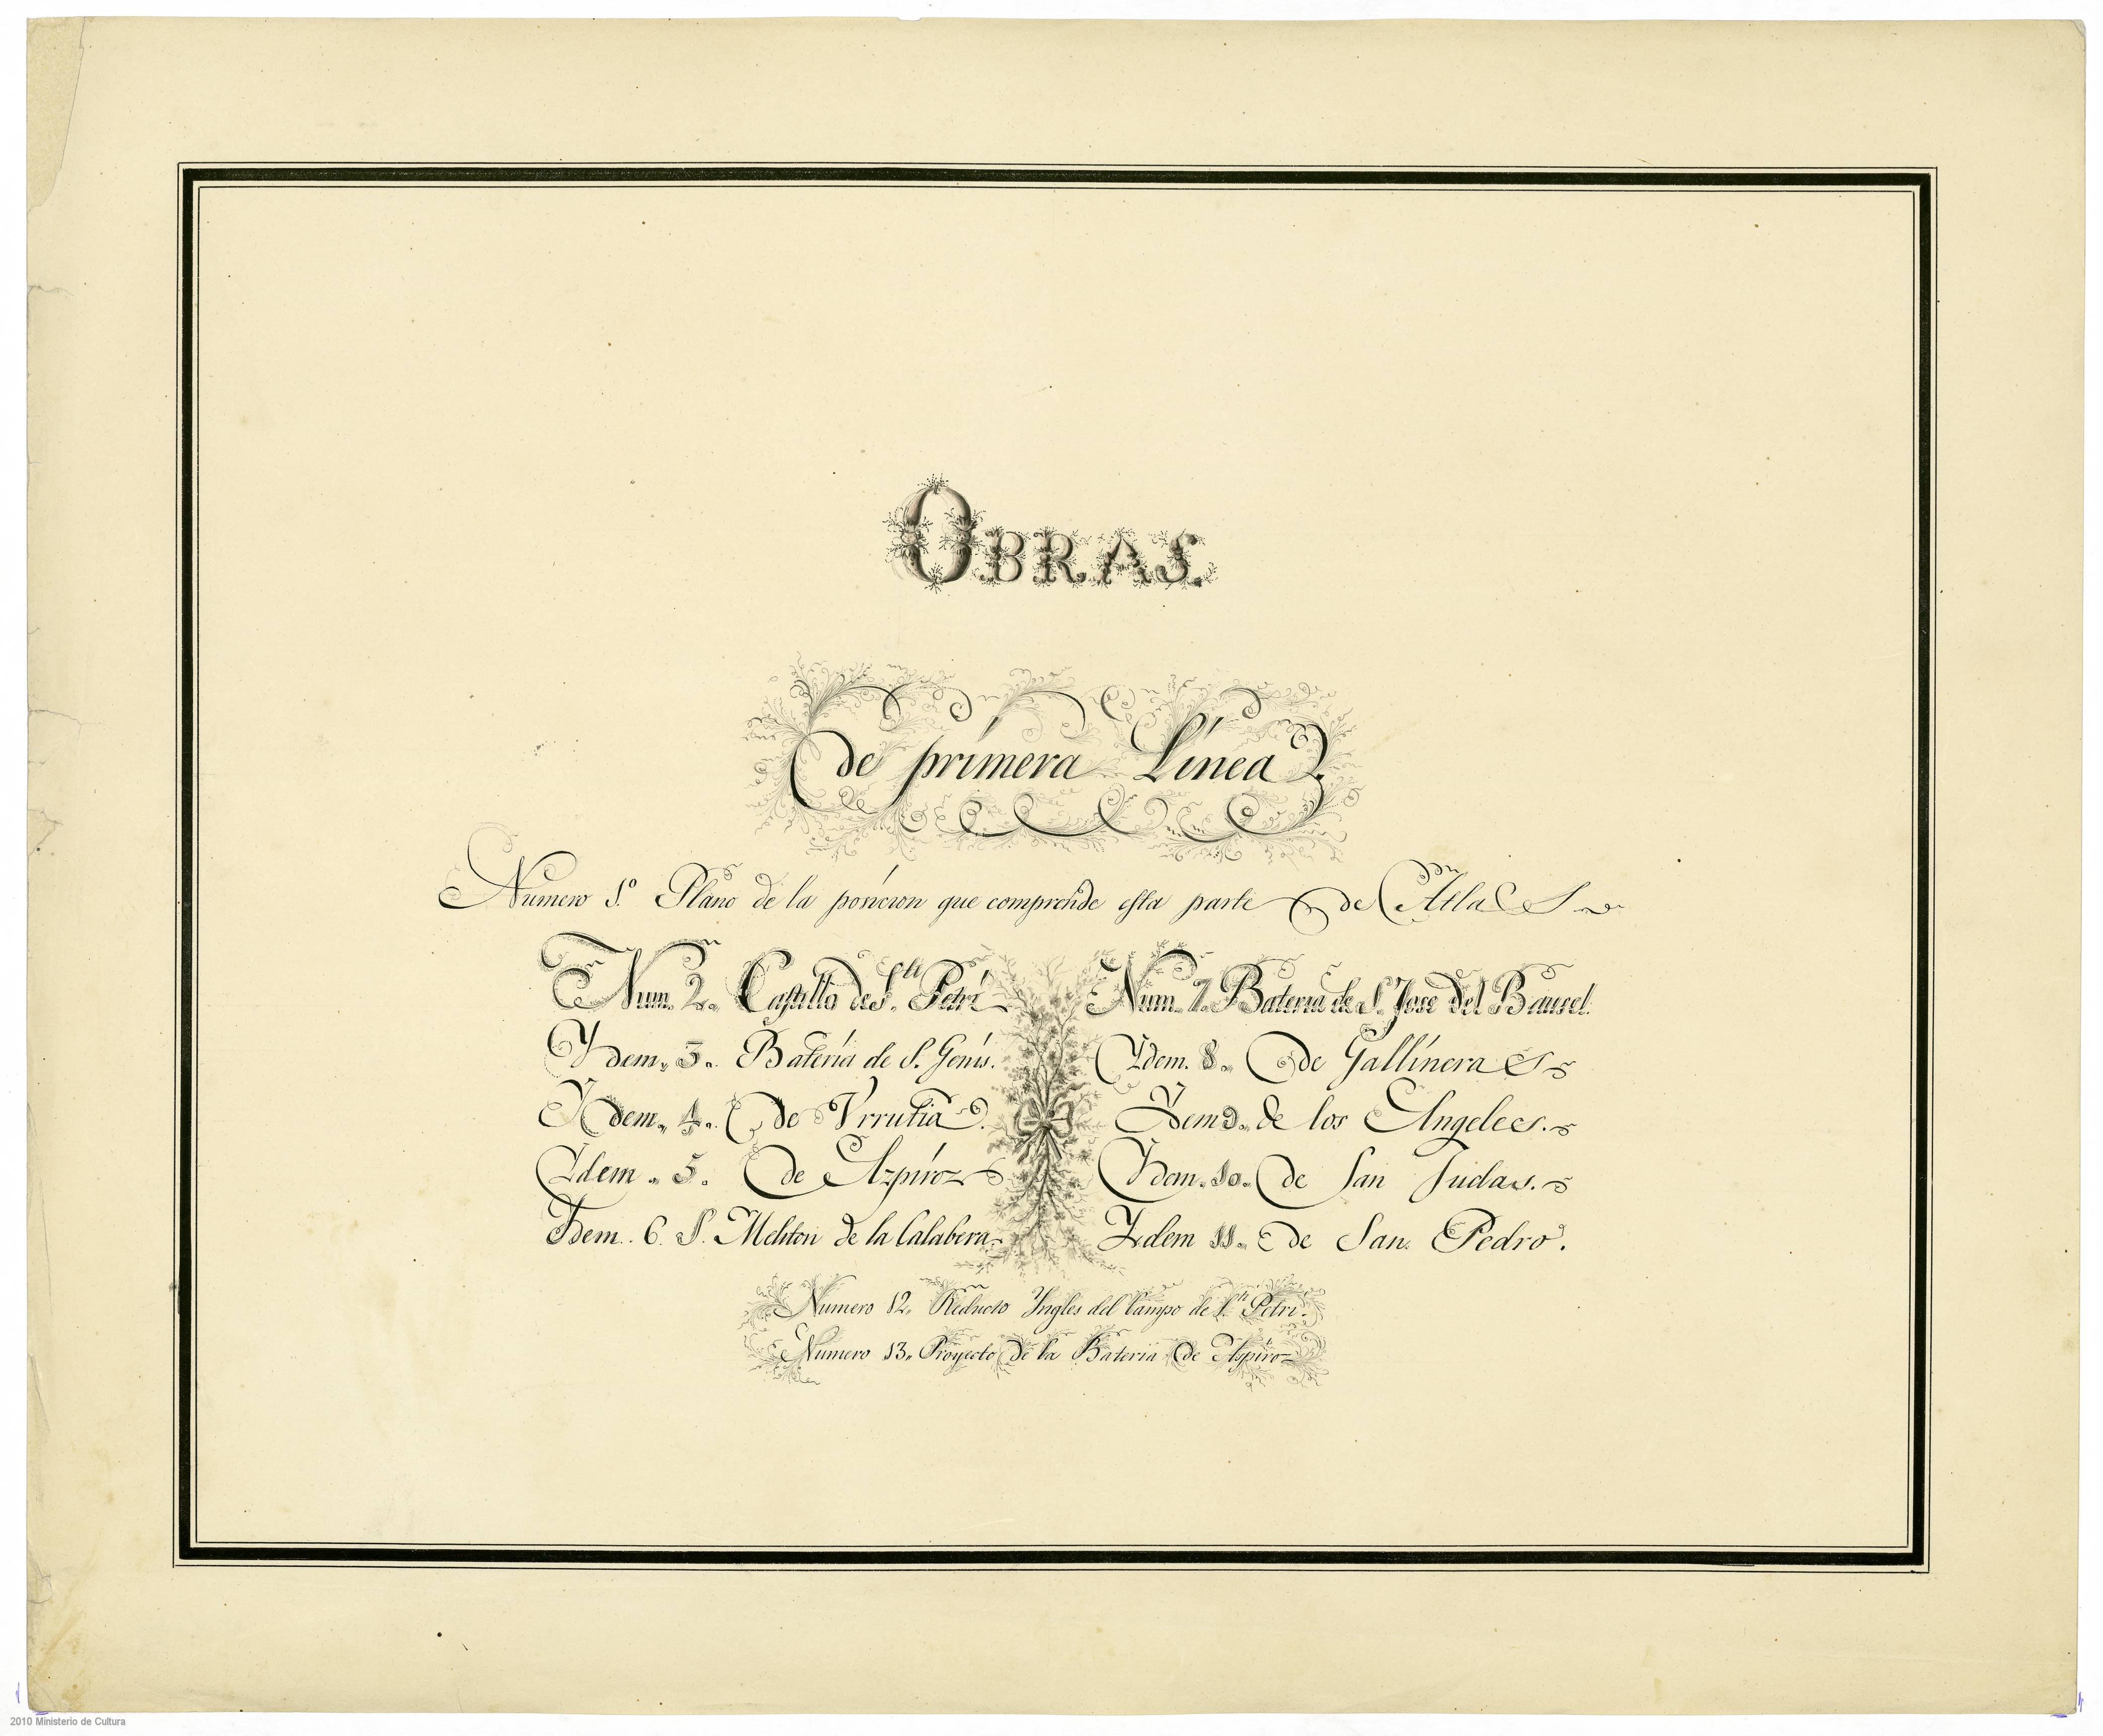 OBRAS
de primera Línea.
Numero 1.º Plano de la posicion que comprende esta parte de Atlas
Num. 2. Castillo de S.ti Petri
Ydem. 3. Batería de S. Genis.
Ydem. 4. de Vrrutia.
Ydem. 5. de Azpíroz
Ydem. 6. S. Meliton de la Calabera
Num. 7. Bateria de S. Jose del
Ydem. 8. de Gallínera
Ydem 9. de los Angeles.
Ydem. 10. de San Judas.
Ydem 11. de San Pedro.
Numero 12. Reducto Yngles del Campo de S.ti Petri.
Numero 13. Proyecto de la Bateria de Aspiroz
2010 Ministerio de Cultura